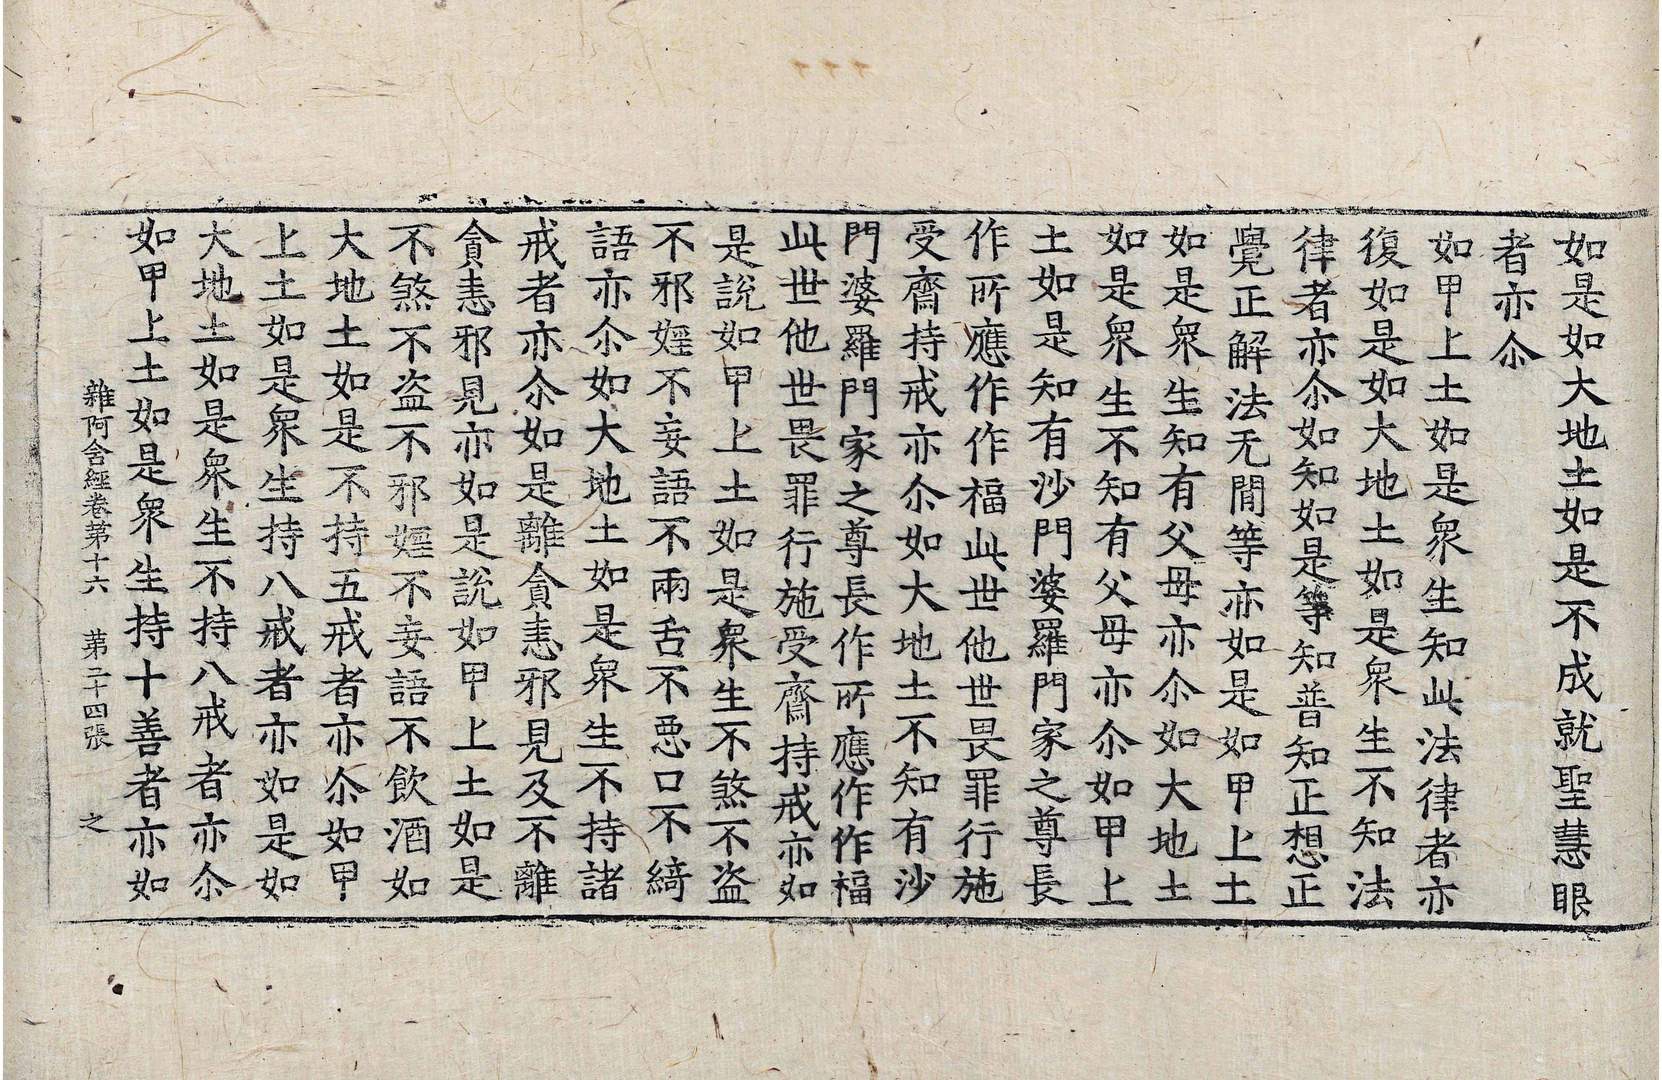 如是如大地土如是不成就聖慧眼
者亦尒
如甲上土如是衆生知此法律者亦
復如是如大地土如是衆生不知法
律者亦尒如知如是等知普知正想正
覺正解法无閒等亦如是如甲上土
如是衆生知有父母亦尒如大地土
如是衆生不知有父母亦尒如甲上
土如是知有沙門婆羅門家之尊長
作所應作作福此世他世畏罪行施
受齋持戒亦尒如大地土不知有沙
門婆羅門家之尊長作所應作作福
此世他世畏罪行施受齋持戒亦如
是說如甲上土如是衆生不煞不盗
不邪婬不妄語不兩舌不悪口不綺
語亦尒如大地土如是衆生不持諸
戒者亦尒如是離貪恚邪見及不離
貪恚邪見亦如是說如甲上土如是
不煞不盗不邪婬不妄語不飲酒如
大地土如是不持五戒者亦尒如甲
上土如是衆生持八戒者亦如是如
大地土如是衆生不持八戒者亦尒
如甲上土如是衆生持十善者亦如
雜阿含經卷第十六 第二十四張 之